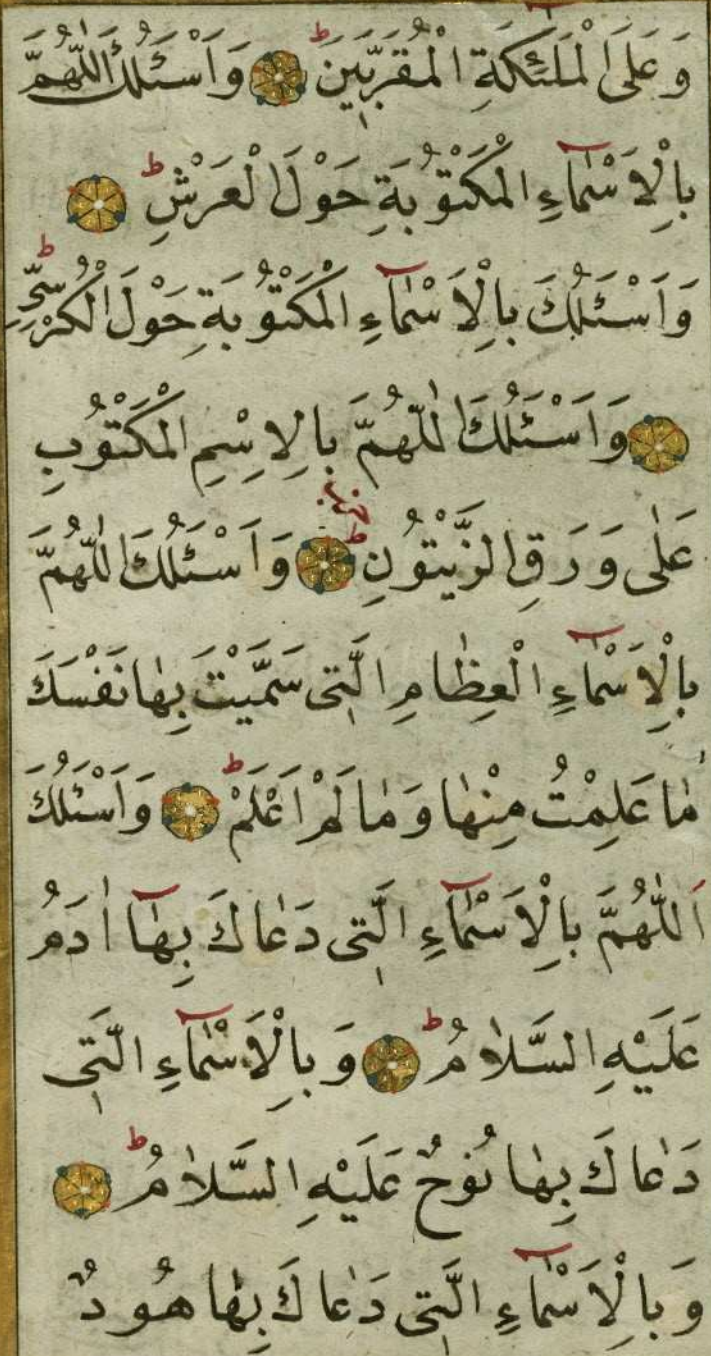 وَعَلَى الْمَلٰئِكَةِ الْمُقَرَّبٖينَ ط وَاَسْئَلُكَ اللّٰهُمَّ
بِالْاَسْمٰٓاءِ الْمَكْتُوْبَةِ حَوْلَ الْعَرْشِ ط
وَاَسْئَلُكَ بِالْاَسْمٰٓاءِ الْمَكْتُوْبَةِ حَوْلَ الْكُرْسِيِّ ط
وَاَسْئَلُكَ اللّٰهُمَّ بِالْاِسْمِ الْمَكْتُوْبِ
حزب
عَلٰى وَرَقِ الزَّيْتُوْنِ ط وَاَسْئَلُكَ اللّٰهُمَّ
بِالْاَسْمٰٓاءِ الْعِظٰامِ الَّتٖى سَمَّيْتَ بِهٰا نَفْسَكَ
مٰا عَلِمْتُ مِنْهٰا وَمٰا لَمْ اَعْلَمْ ط وَاَسْئَلُكَ
اَللّٰهُمَّ بِالْاَسْمٰٓاءِ الَّتٖى دَعٰاكَ بِهٰٓا اٰدَمُ
عَلَيْهِ السَّلٰامُ ط وَبِالْاَسْمٰٓاءِ الَّتٖى
دَعٰاكَ بِهٰا نُوْحٌ عَلَيْهِ السَّلٰامُ ط
وَبِالْاَسْمٰٓاءِ الَّتٖى دَعٰاكَ بِهٰا هُودٌ